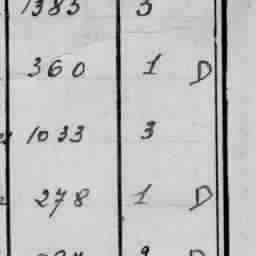 1385 3
360 1 D
1033 3
278 1 D